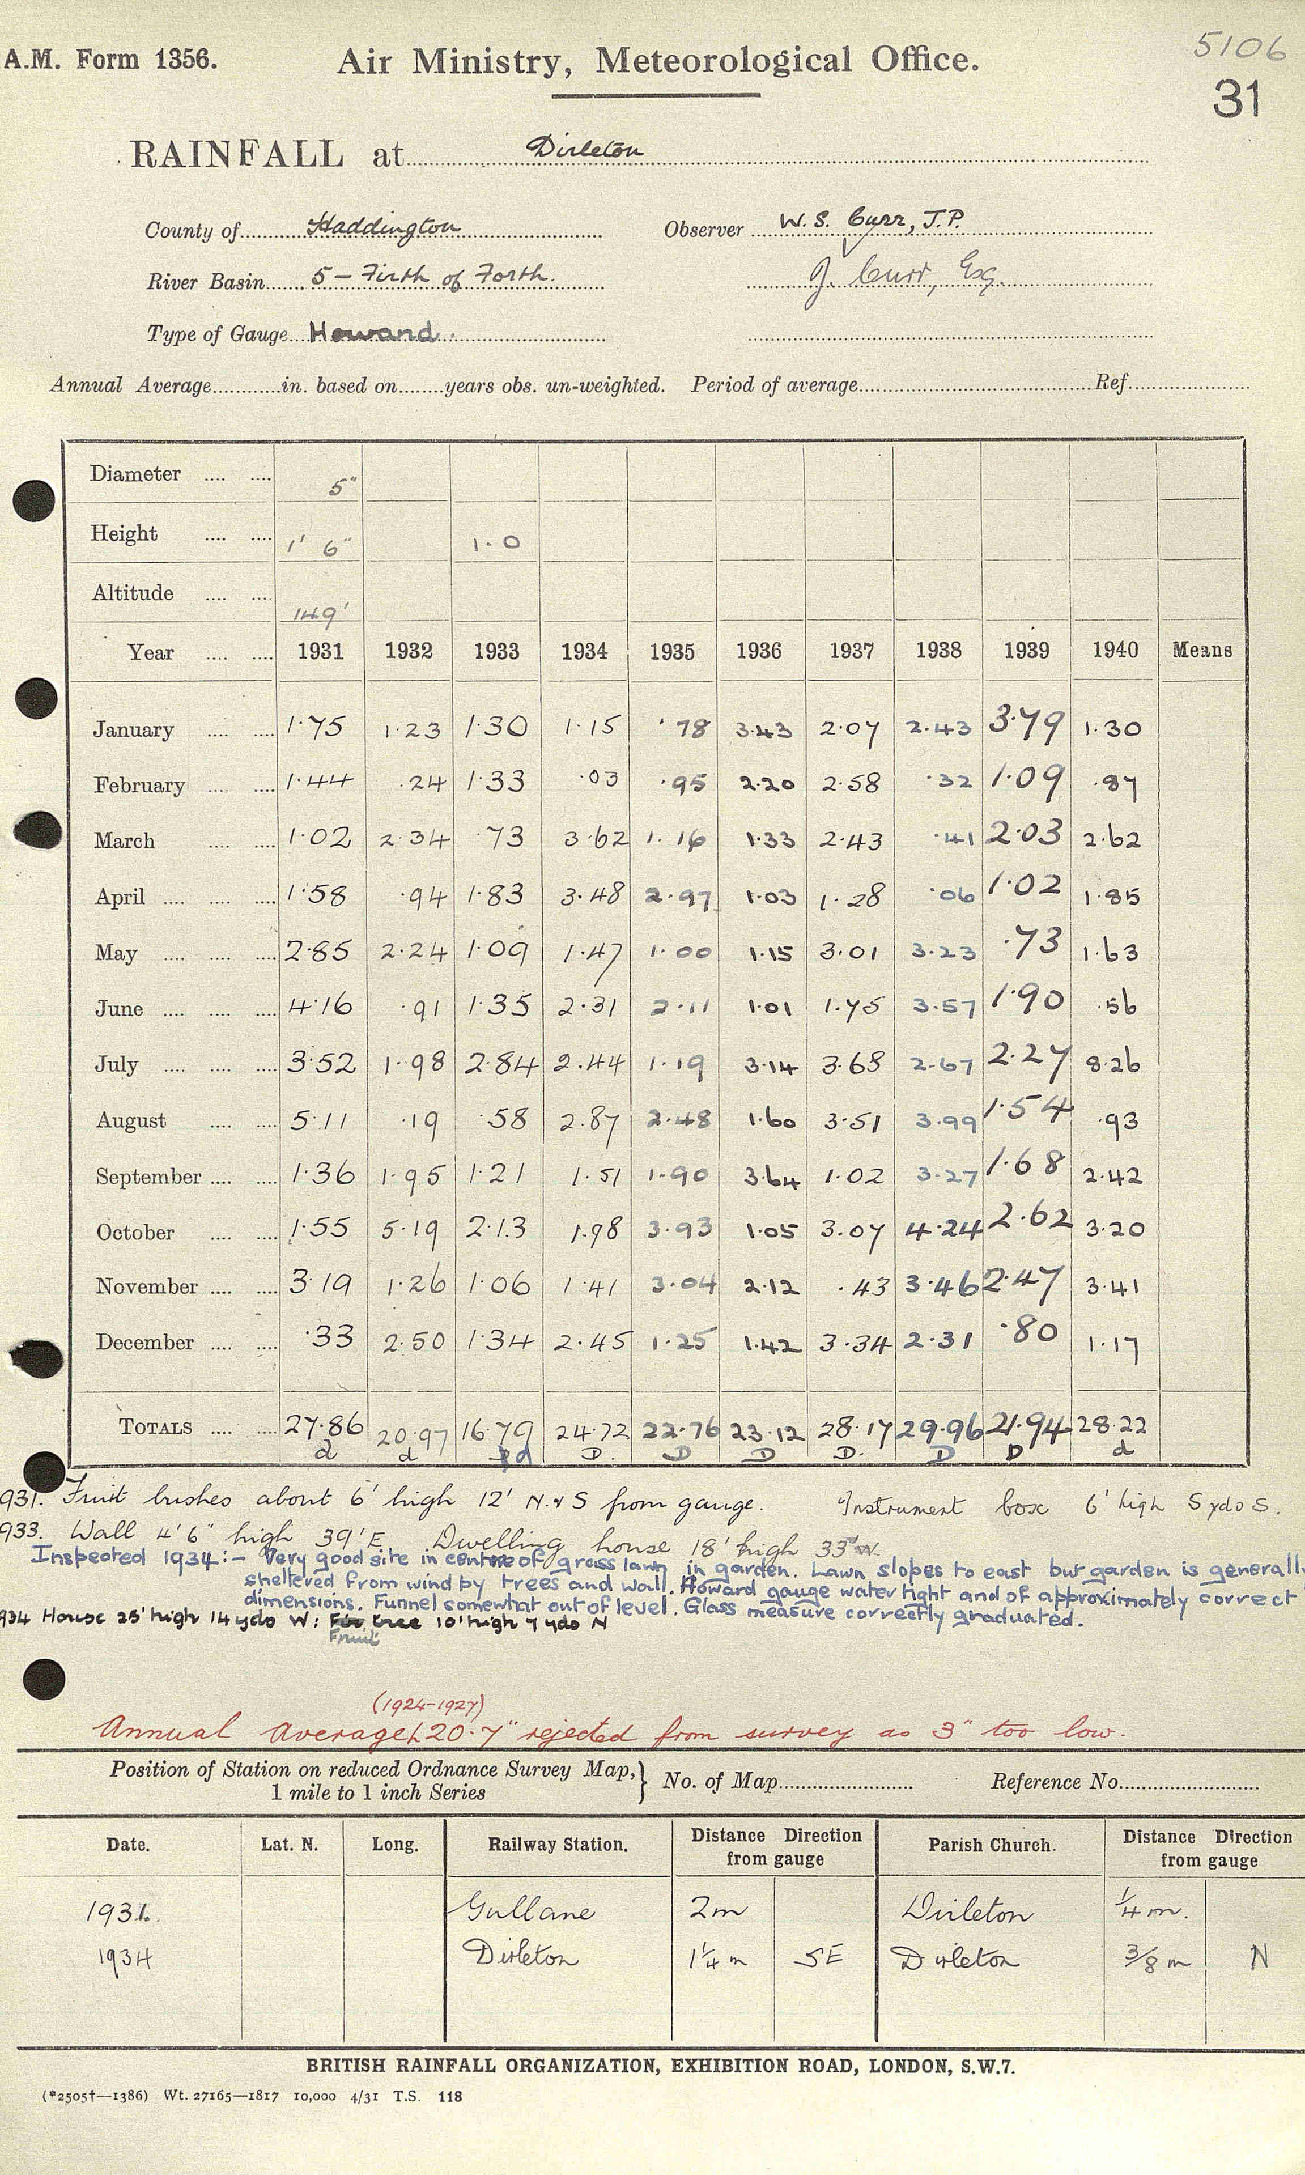 5106
A.M. Form 1356. Air Ministry, Meteorological Office.
31
RAINFALL at Dirleton
County of Haddington Observer W. S. Curr, J.P.
River Basin 5 - Firth of Forth. J. Curr, Esq.
Type of Gauge Howard
Annual Average in. based on years obs. un-weighted. Period of average Ref.
Diameter 5"
Height 1' 6" 1.0
Altitude 149'
Year 1931 1932 1933 1934 1935 1936 1937 1938 1939 1940 Means
January 1.75 1.23 1.30 1.15 .78 3.43 2.07 2.43 3.79 1.30
February 1.44 .24 1.33 .03 .95 2.20 2.58 .32 1.09 .87
March 1.02 2.34 .73 3.62 1.16 1.33 2.43 .41 2.03 2.62
April 1.58 .94 1.83 3.48 2.97 1.03 1.28 .06 1.02 1.85
May 2.85 2.24 1.09 1.47 1.00 1.15 3.01 3.23 .73 1.63
June 4.16 .91 1.35 2.31 2.11 1.01 1.75 3.57 1.90 .56
July 3.52 1.98 2.84 2.44 1.19 3.14 3.68 2.67 2.27 8.26
August 5.11 .19 .58 2.87 2.48 1.60 3.51 3.99 1.54 .93
September 1.36 1.95 1.21 1.51 1.90 3.64 1.02 3.27 1.68 2.42
October 1.55 5.19 2.13 1.98 3.93 1.05 3.07 4.24 2.62 3.20
November 3.19 1.26 1.06 1.41 3.04 2.12 .43 3.46 2.47 3.41
December .33 2.50 1.34 2.45 1.25 1.42 3.34 2.31 .80 1.17
TOTALS 27.86 20.97 16.79 24.72 22.76 23.12 28.17 29.96 21.94 28.22
d d d D D D D D D d
931. Fruit bushes about 6' high 12' N. & S from gauge. Instrument box 6' high 5 yds S.
933. Wall 4'6" high 39' E. Dwelling house 18' high 33' W.
Inspected 1934:- Very good site in centre of grass lawn in garden. Lawn slopes to east but garden is generall
sheltered from wind by trees and wall. Howard gauge water tight and of approximately correct
dimensions. Funnel somewhat out of level. Glass measure correctly graduated.
934 House 25' high 14 yds W: Fir tree 10' high 7 yds N
Fruit
(1924-1927)
Annual Average 20.7" rejected from survey as 3" too low.
Position of Station on reduced Ordnance Survey Map, 1 mile to 1 inch Series } No. of Map Reference No.
Date. Lat. N. Long. Railway Station. Distance Direction from gauge Parish Church. Distance Direction from gauge
1931. Gullane 2m Dirleton 1/4 m.
1934 Dirleton 1 1/4 m SE Dirleton 3/8 m N
BRITISH RAINFALL ORGANIZATION, EXHIBITION ROAD, LONDON, S.W.7.
(*2505†—1386) Wt. 27165—1817 10,000 4/31 T.S. 118